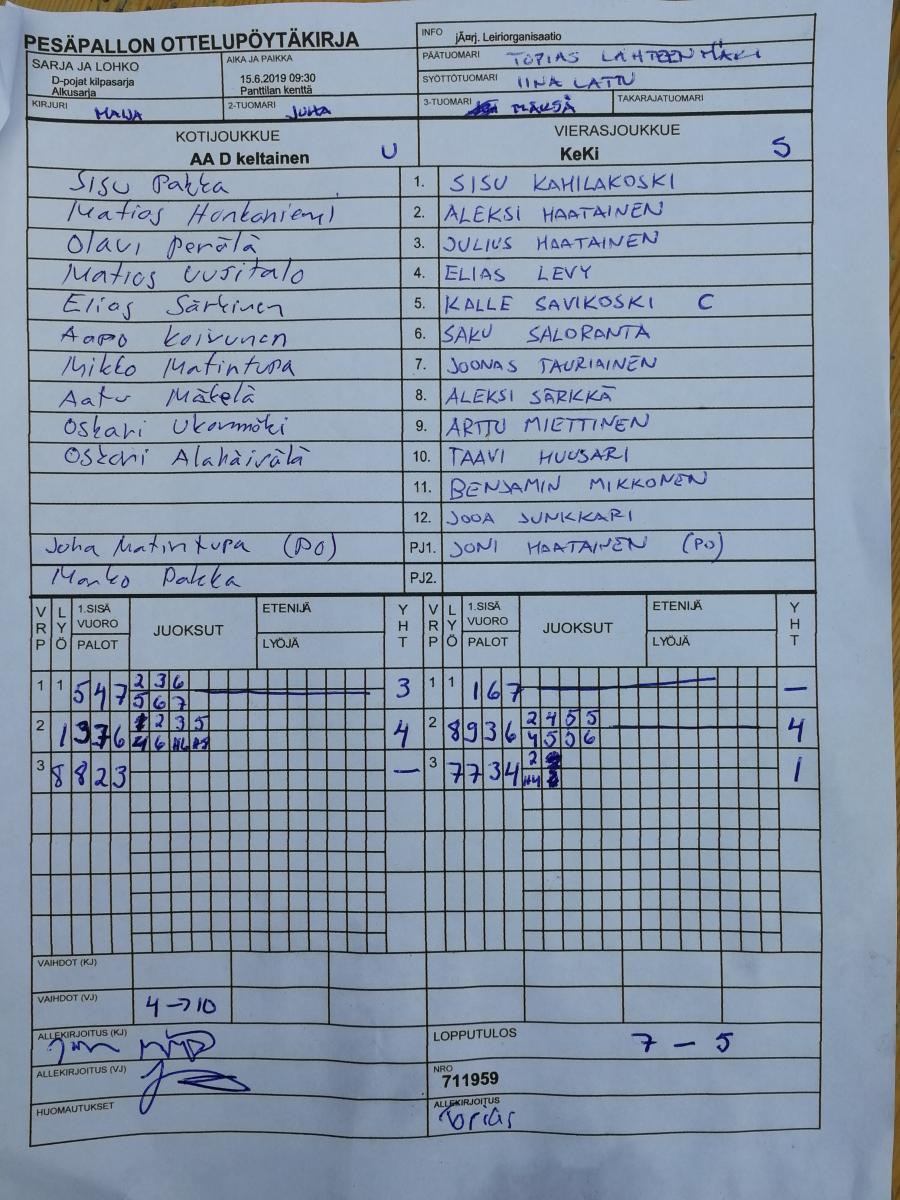 PESÄPALLON OTTELUPÖYTÄKIRJA
INFO jÃ¤rj. Leiriorganisaatio
PÄÄTUOMARI TOPIAS LÄHTEENMÄKI
SYÖTTÖTUOMARI IINA LATTU
3-TUOMARI TAKARAJATUOMARI
SARJA JA LOHKO
D-pojat kilpasarja
Alkusarja
AIKA JA PAIKKA
15.6.2019 09:30
Panttilan kenttä
KIRJURI MAIJA 2-TUOMARI JUHA
KOTIJOUKKUE
AA D keltainen U
VIERASJOUKKUE
KeKi S
Sisu Pakka 1. SISU KAHILAKOSKI
Matias Honkaniemi 2. ALEKSI HAATAINEN
Olavi Perälä 3. JULIUS HAATAINEN
Matias Uusitalo 4. ELIAS LEVY
Elias Särkinen 5. KALLE SAVIKOSKI C
Aapo Koivunen 6. SAKU SALORANTA
Mikko Matintupa 7. JOONAS TAURIAINEN
Aatu Mäkelä 8. ALEKSI SÄRKKÄ
Oskari 9. ARTTU MIETTINEN
Oskari 10. TAAVI HUUSARI
11. BENJAMIN MIKKONEN
12. JOOA JUNKKARI
Juha Matintupa (PO) PJ1. JONI HAATAINEN (PO)
Marko Pakka PJ2.
VRP LYÖ 1.SISÄ VUORO PALOT JUOKSUT ETENIJÄ LYÖJÄ YHT VRP LYÖ 1.SISÄ VUORO PALOT JUOKSUT ETENIJÄ LYÖJÄ YHT
1 1 547 2 3 6 3 1 1 167 —
5 6 7
2 1 976 2 3 5 4 2 8 936 2 4 5 5 4
4 6 4 5 5 6
3 8 823 — 3 7 734 2 1
VAIHDOT (KJ)
VAIHDOT (VJ) 4 → 10
ALLEKIRJOITUS (KJ) LOPPUTULOS 7 – 5
ALLEKIRJOITUS (VJ) NRO
711959
HUOMAUTUKSET ALLEKIRJOITUS
Topias